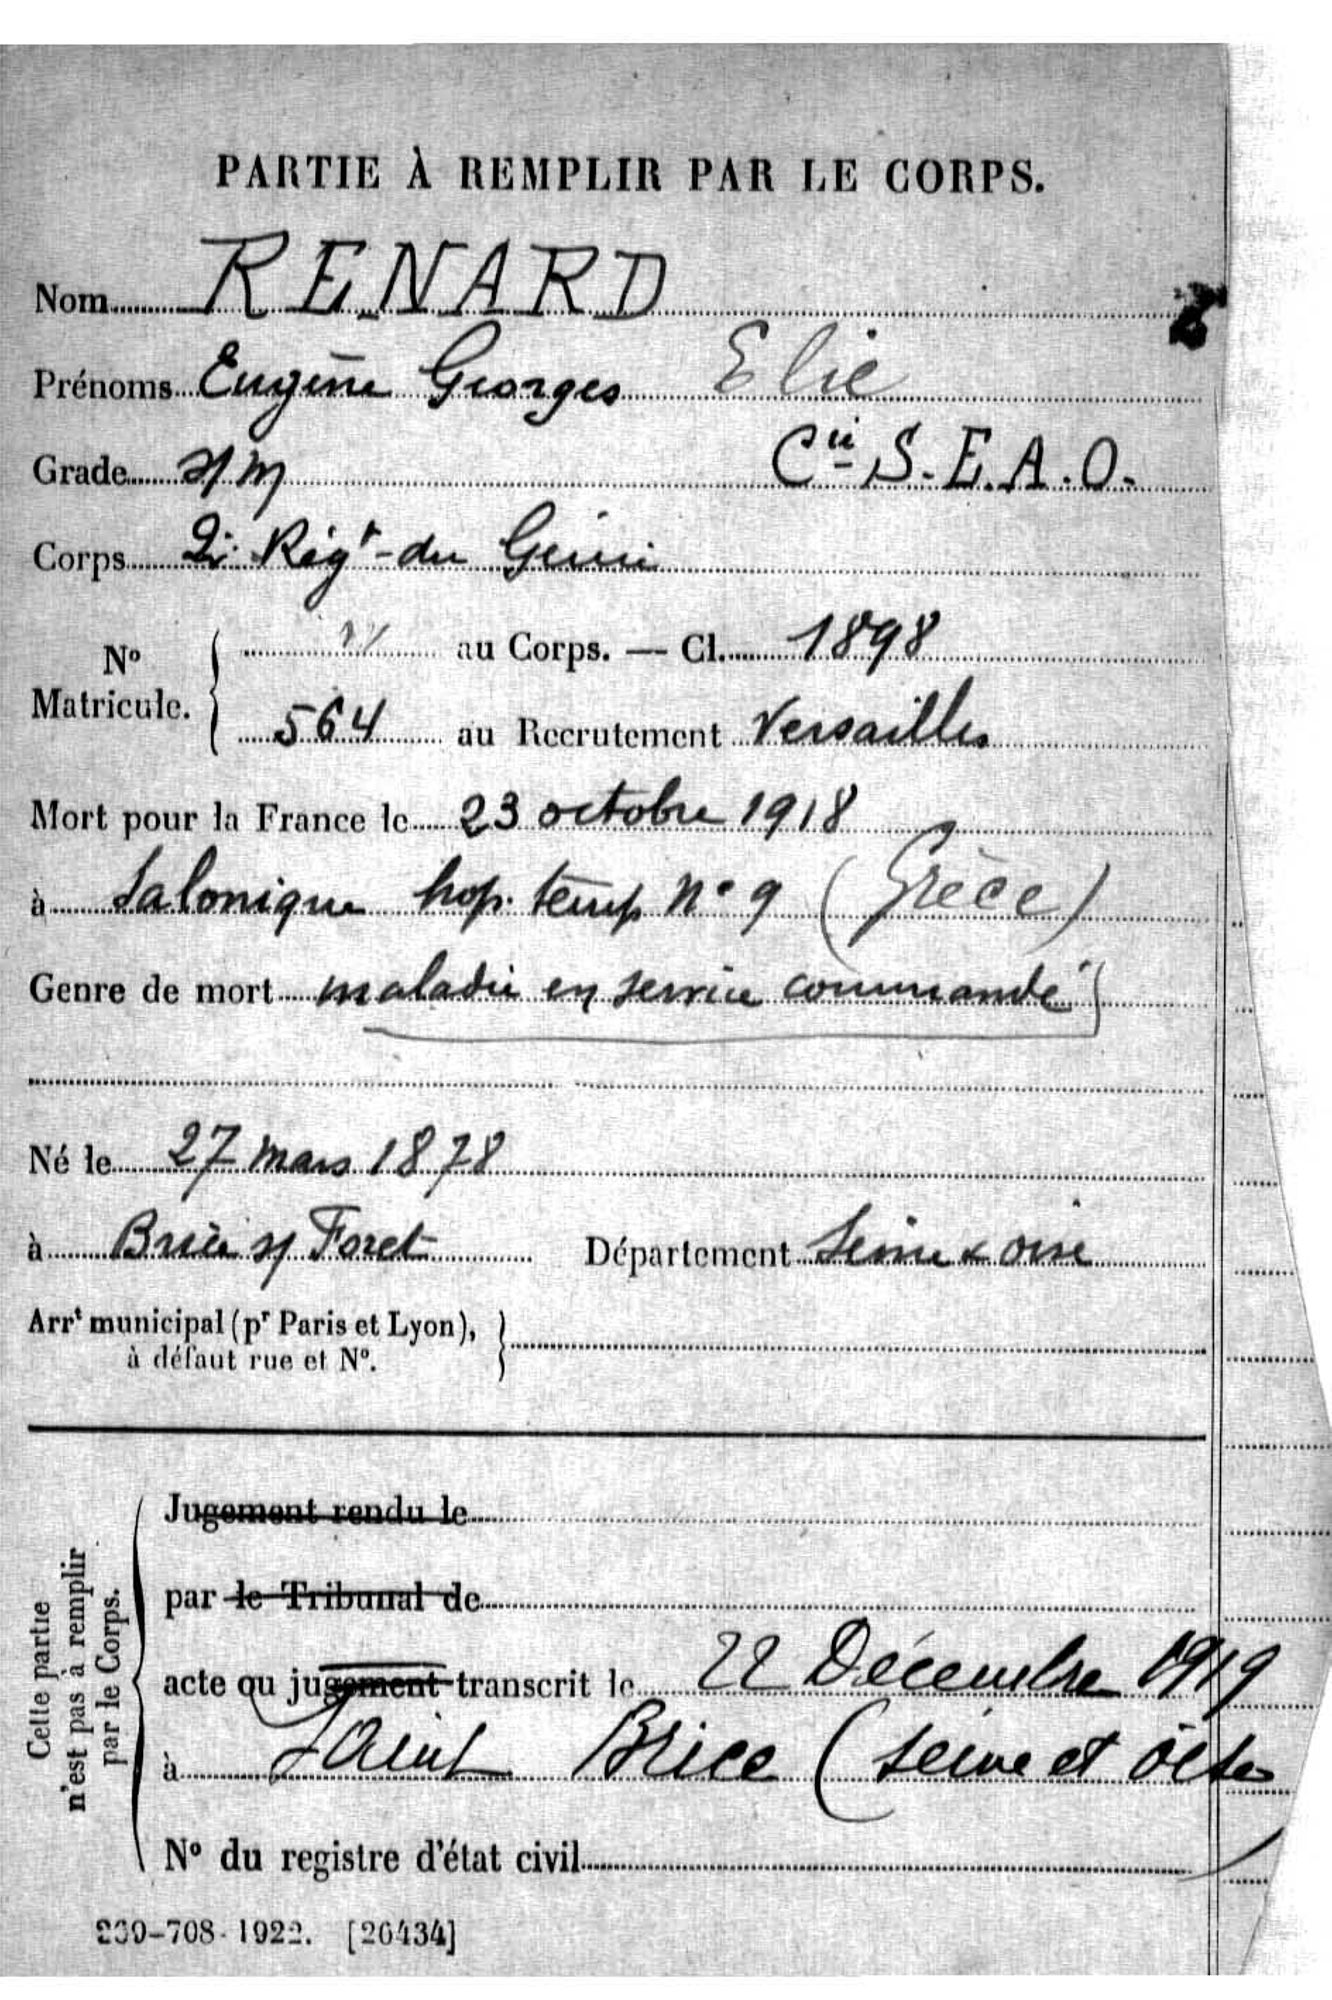 PARTIE À REMPLIR PAR LE CORPS.
Nom RENARD
Prénoms Eugène Georges Elie
Grade s/m Cie S.E.A.O.
Corps 2e Régt du Génie
No Matricule. { " au Corps. — Cl. 1898
564 au Recrutement Versailles
Mort pour la France le 23 octobre 1918
à Salonique hop. temp No 9 (Grèce)
Genre de mort maladie en service commandé
Né le 27 mars 1878
à s/ Foret Département Seine & oise
Arrt municipal (pr Paris et Lyon),
à défaut rue et No.
Cette partie n'est pas à remplir par le Corps.
Jugement rendu le
par le Tribunal de
acte ou jugement transcrit le 22 Décembre 1919
à Saint Brice (Seine et Oise
No du registre d'état civil
239-708-1922. [26434]